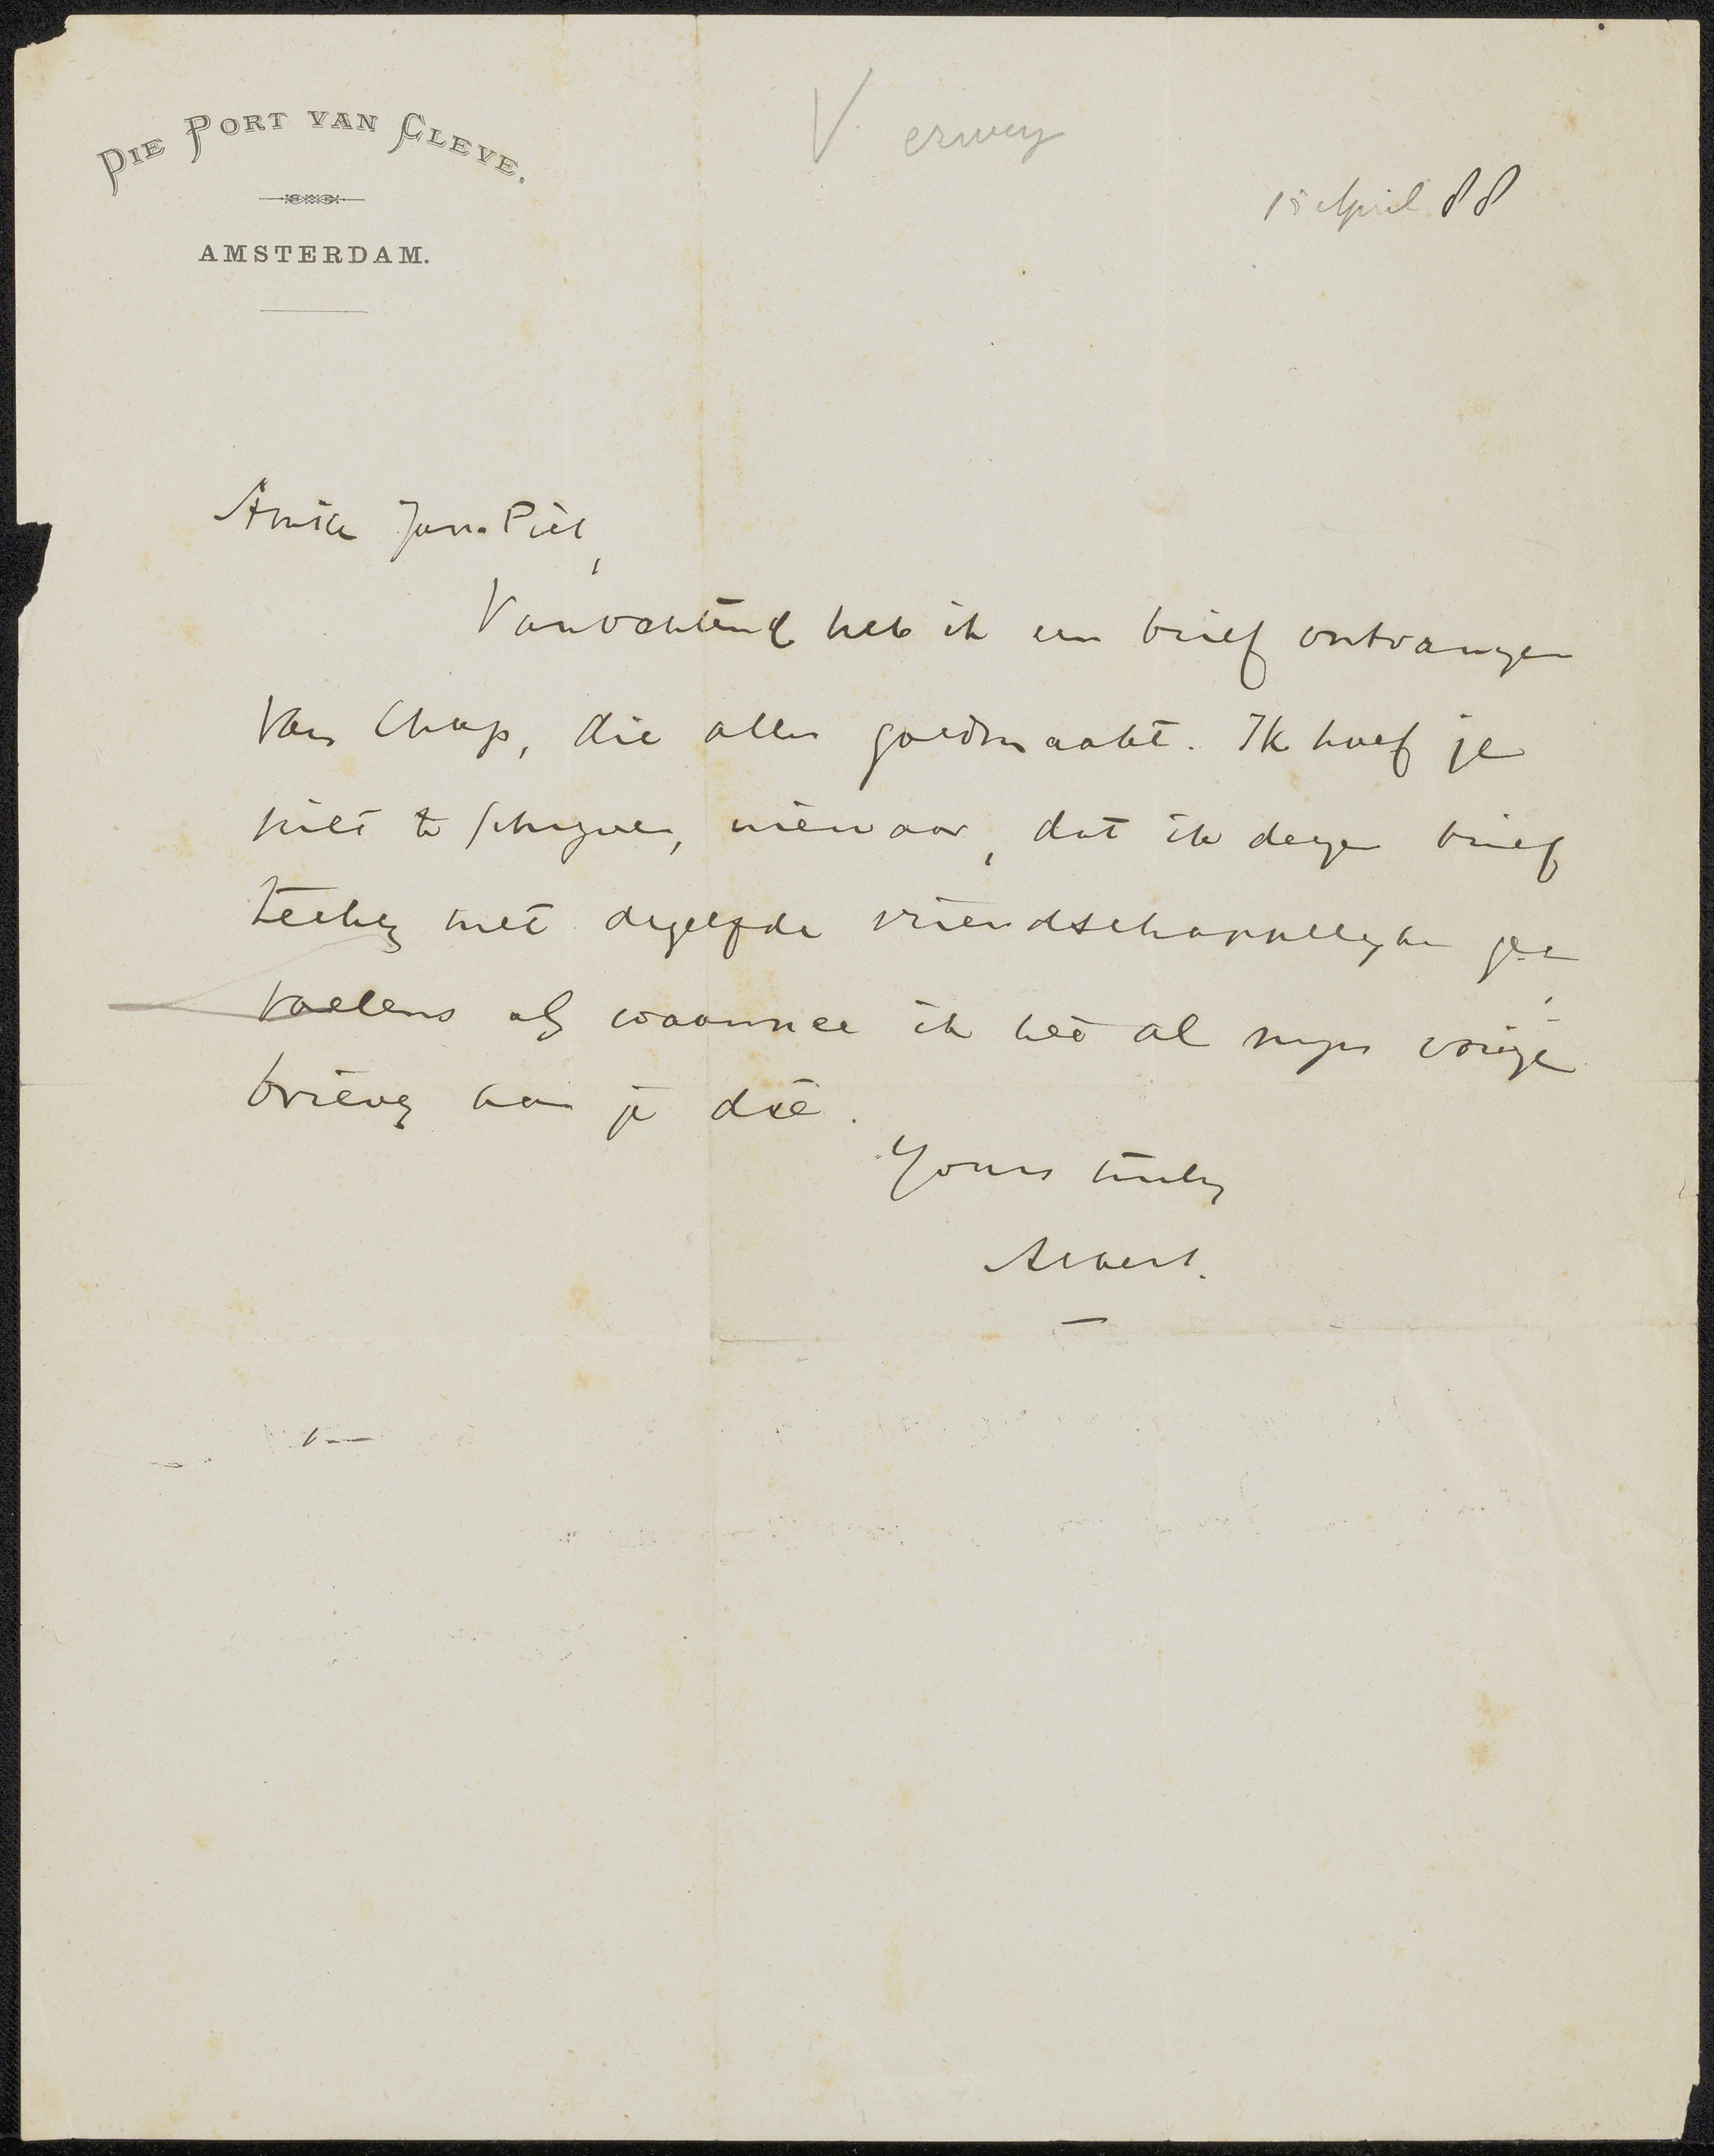 DIE PORT VAN CLEVE.
AMSTERDAM.
V. erwey
15 April 88
Amice Jan-Piet,
Vanochtend heb ik een brief ontvangen
van Chap, die alles goedmaakt. Ik hoef je
niet te schrijven, niewaar, dat ik dezen brief
teeken met dezelfde vriendschappelijke ge-
voelens als waarmee ik het al mijn vorige
brieven aan je deê.
Yours truly
Albert.